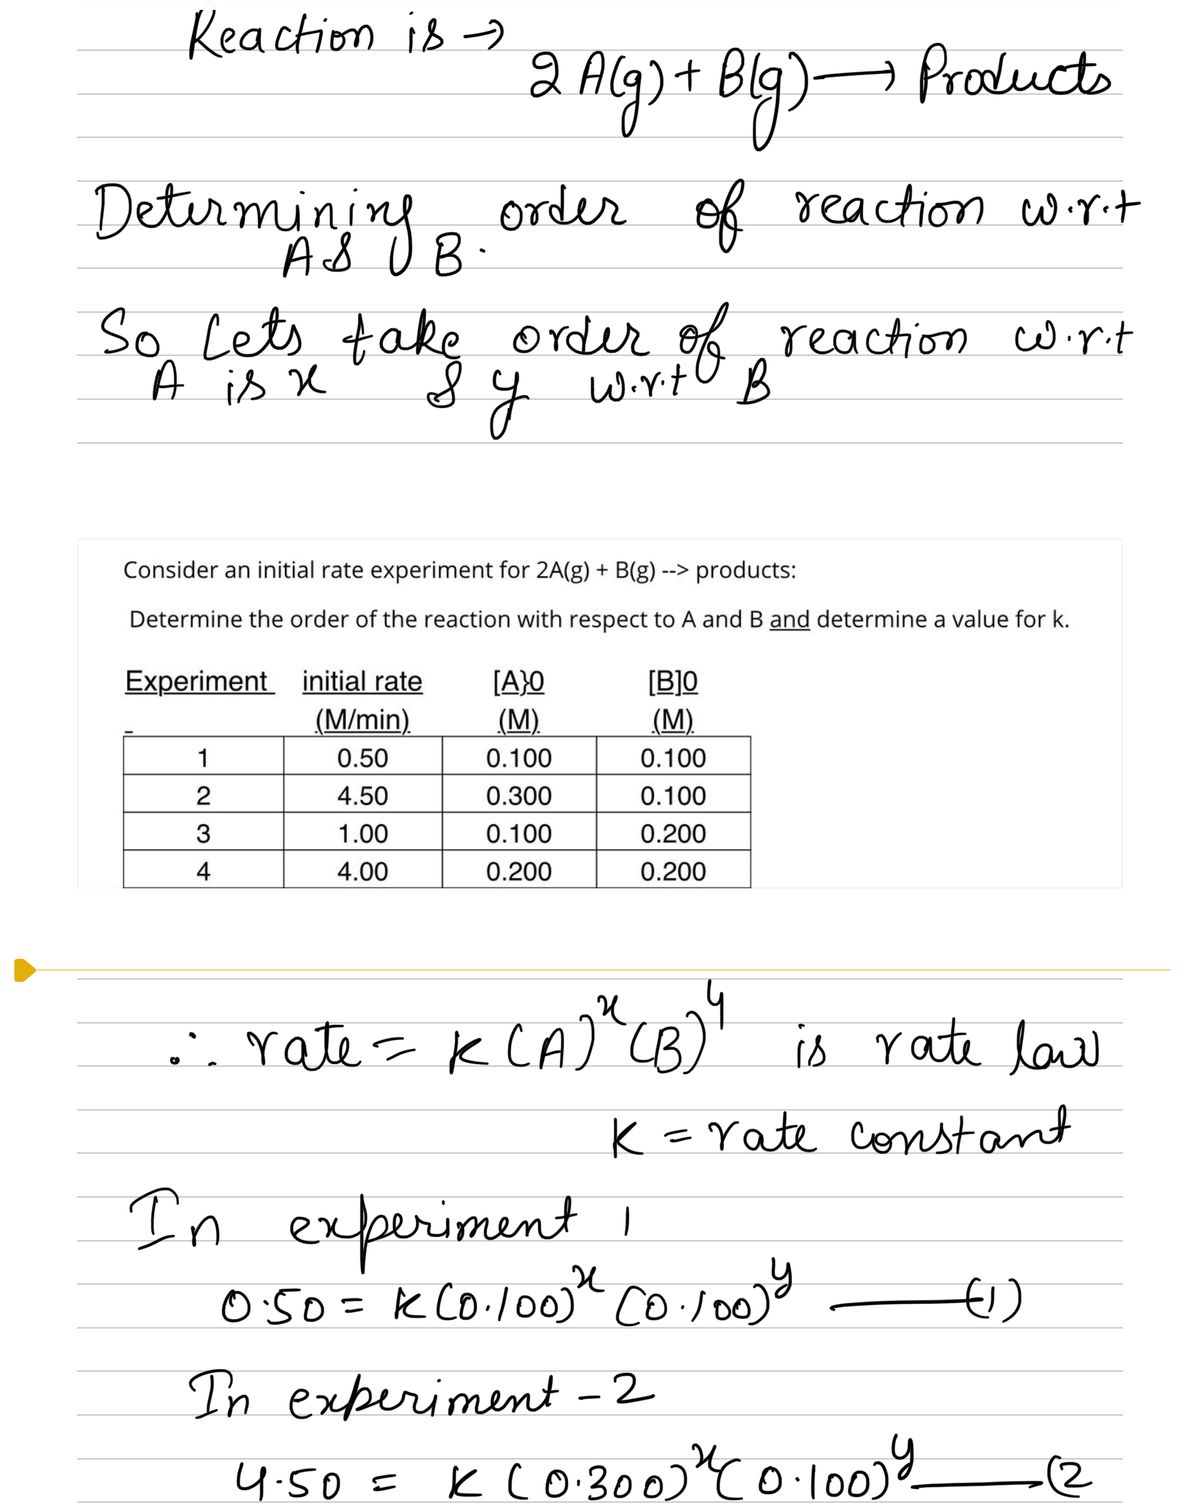 Reaction is →
2A(g) + B(g) ⟶ Products
Determining order of reaction w.r.t
A & B.
So Lets take order of reaction w.r.t
A is x & y w.r.t B
Consider an initial rate experiment for 2A(g) + B(g) --> products:
Determine the order of the reaction with respect to A and B and determine a value for k.
Experiment initial rate [A}0 [B]0
(M/min) (M) (M)
1 0.50 0.100 0.100
2 4.50 0.300 0.100
3 1.00 0.100 0.200
4 4.00 0.200 0.200
∴ rate = K (A)^x (B)^y is rate law
K = rate constant
In experiment 1
0.50 = K (0.100)^x (0.100)^y —(1)
In experiment - 2
4.50 = K (0.300)^x (0.100)^y —(2